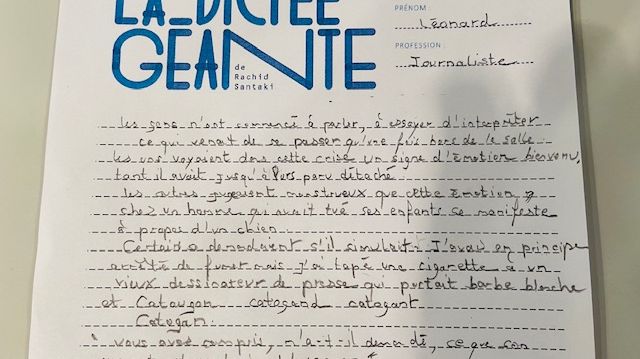 LA_DICTÉE
GÉANTE
de
Rachid
Santaki
PRÉNOM :
Léonard
PROFESSION :
Journaliste
les gens n'ont commencé à parler, à essayer d'interpréter
ce qui venait de se passer qu'une fois hors de la salle
les uns voyaient dans cette crise un signe d'émotion bienvenu,
tant il avait jusqu'à paru détaché
les autres jugeaient monstrueux que cette émotion
chez un homme qui avait tué ses enfants se manifeste
à propos d'un chien
Certains demandaient s'il simulait. J'avais en principe
arrêté de fumer mais j'ai tapé une cigarette à un
vieux dessinateur de presse qui portait barbe blanche
et Cataugan catogand catogant
Catogan
vous avez compris, n'a-t-il demandé, ce que son